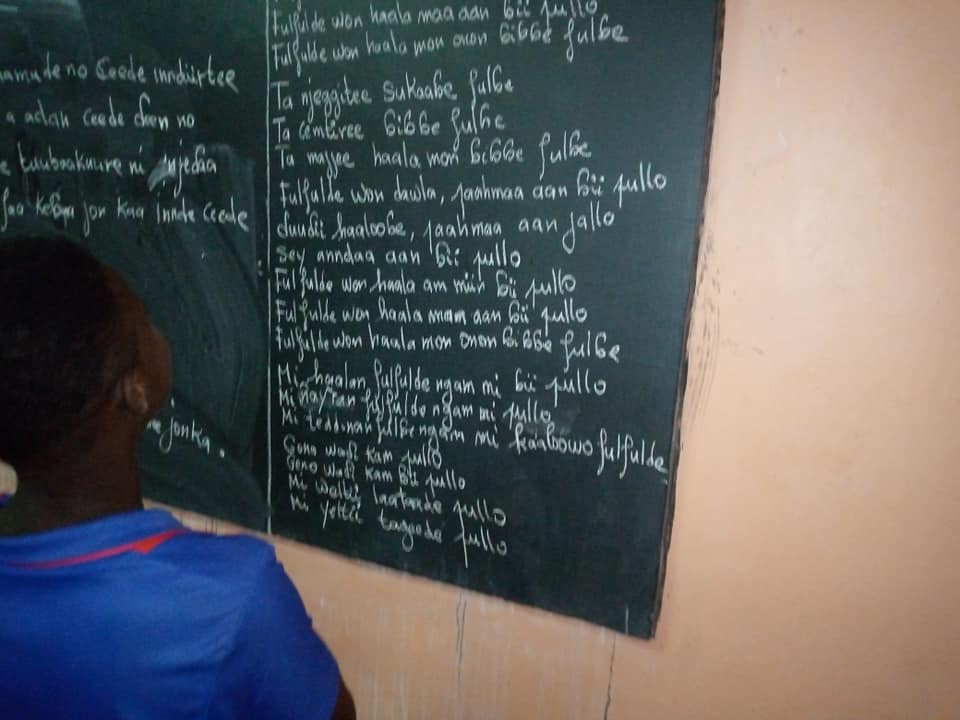 no ceede inndiirtee
a adan ceede ɗeen no
ni njeɗaa
jon kaa innde ceede
jonka.
Fulfulde won haala maa aan ɓii pullo
Fulfulde won haala mon onon ɓiɓɓe fulɓe
Ta njeggitee sukaaɓe fulɓe
Ta cemtiree ɓiɓɓe fulɓe
Ta majjee haala mon ɓiɓɓe fulɓe
Fulfulde won dawla, jaahmaa aan ɓii pullo
ɗuuɗii haalooɓe, jaahmaa aan jallo
Sey anndaa aan ɓii pullo
Fulfulde won haala am miin ɓii pullo
Fulfulde won haala mam aan ɓii pullo
Fulfulde won haala mon onon ɓiɓɓe fulɓe
Mi haalan fulfulde ngam mi ɓii pullo
Mi fulfulde ngam mi pullo
Mi teddinan fulɓe ngam mi kaaloowo fulfulde
Geno waɗi kam pullo
Geno waɗi kam ɓii pullo
Mi weltii laataade pullo
Mi yettii tageede pullo